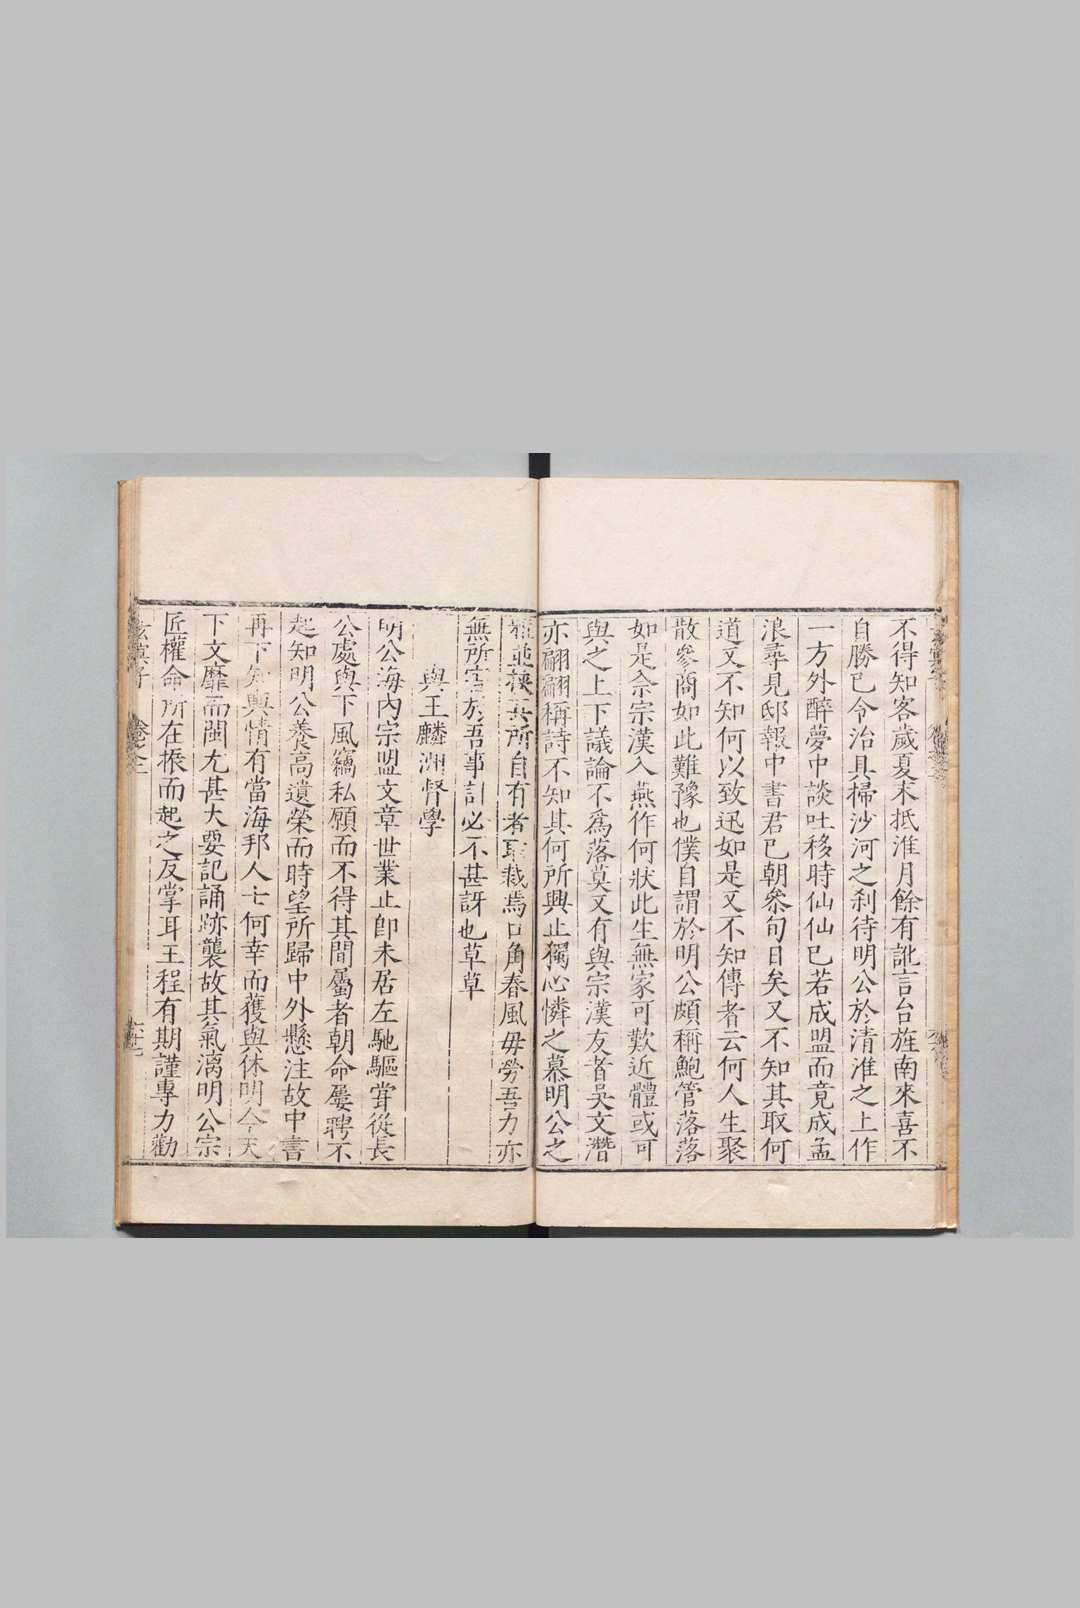 不得知客歲夏末抵淮月餘有訛言台旌南來喜不
自勝已令治具掃沙河之刹待明公於清淮之上作
一方外醉夢中談吐移時仙仙已若成盟而竟成孟
浪尋見邸報中書君已朝參旬日矣又不知其取何
道又不知何以致迅如是又不知傳者云何人生聚
散參商如此難豫也僕自謂於明公頗稱鮑管落落
如是余宗漢入燕作何狀此生無家可歎近體或可
與之上下議論不爲落莫又有與宗漢友者吳文潛
亦翩翩稱詩不知其何所興止獨心憐之慕明公之
並挾其所自有者取裁焉口角春風毋勞吾力亦
無所害於吾事計必不甚訝也草草
與王麟洲督學
明公海內宗盟文章世業止卽未居左馳驅嘗從長
公處與下風竊私願而不得其間屬者朝命屢聘不
起知明公養高遺榮而時望所歸中外懸注故中書
再下知輿情有當海邦人士何幸而獲與休明今天
下文靡而閩尤甚大要記誦跡襲故其氣漓明公宗
匠權命所在振而起之反掌耳王程有期謹專力勸
玄真子 卷之三